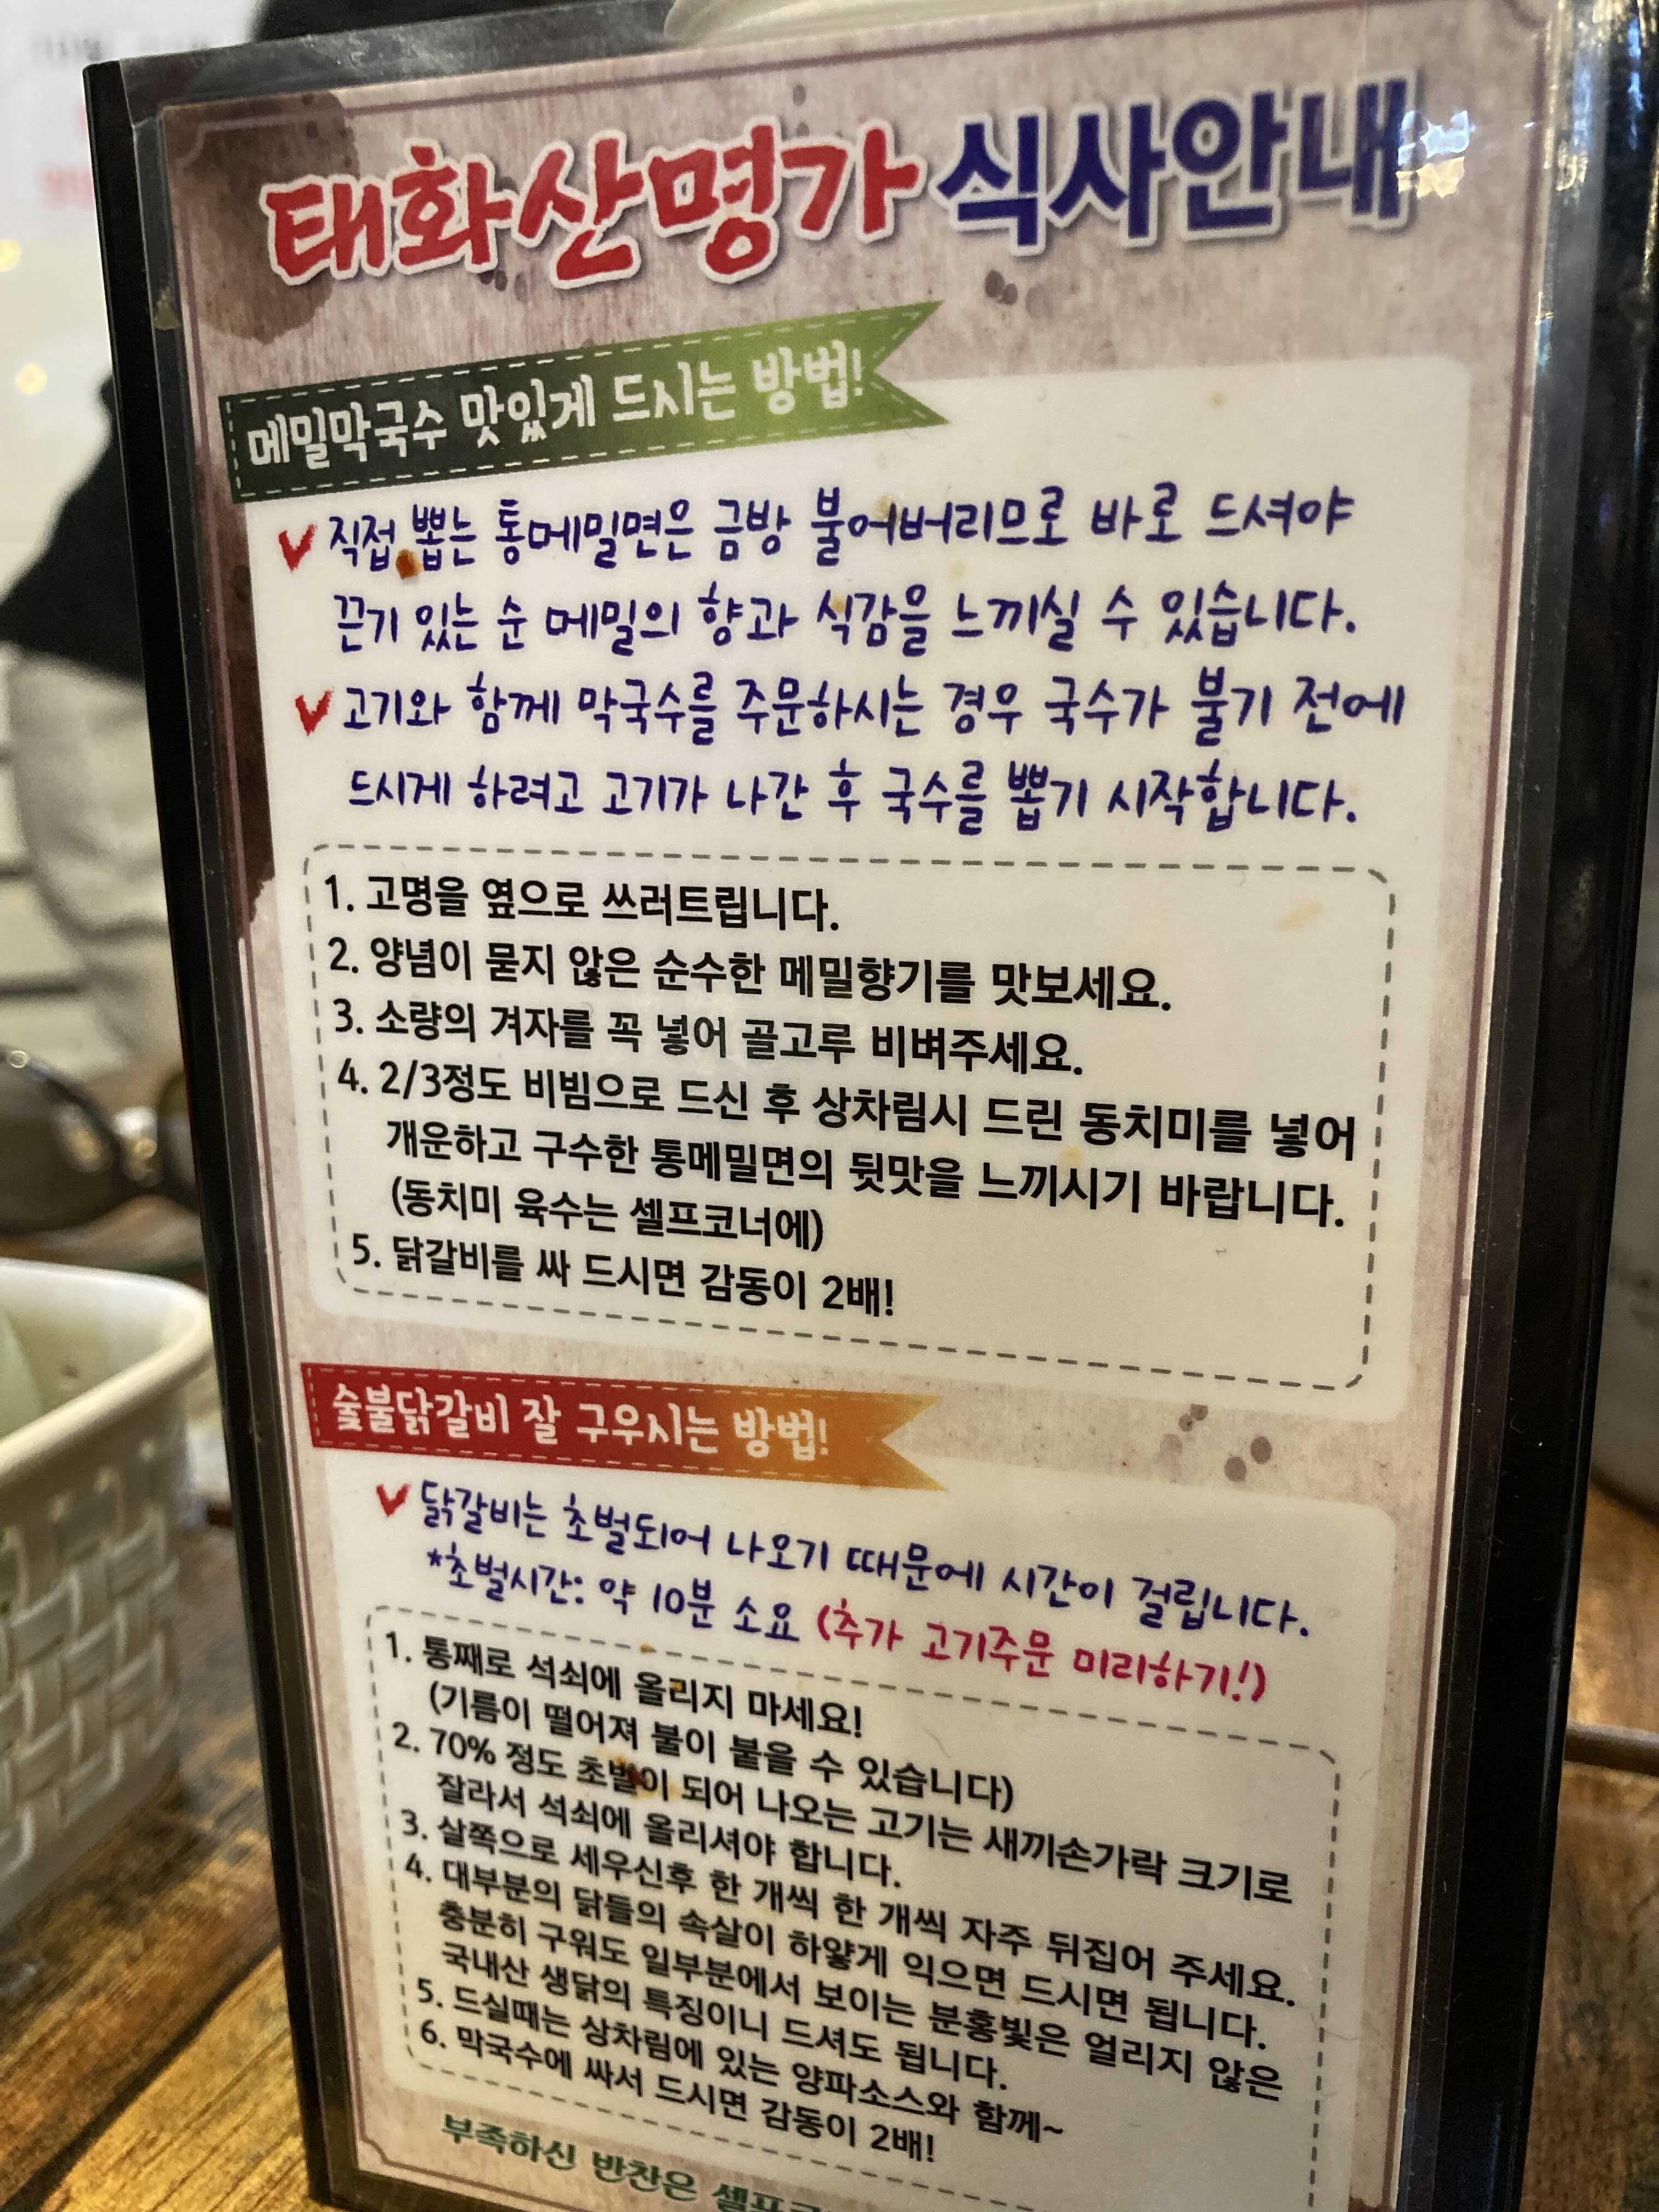 태화산명가 식사안내
메밀막국수 맛있게 드시는 방법!
직접 뽑는 통메밀면은 금방 불어버리므로 바로 드셔야
끈기 있는 순 메밀의 향과 식감을 느끼실 수 있습니다.
고기와 함께 막국수를 주문하시는 경우 국수가 불기 전에
드시게 하려고 고기가 나간 후 국수를 뽑기 시작합니다.
1. 고명을 옆으로 쓰러트립니다.
2. 양념이 묻지 않은 순수한 메밀향기를 맛보세요.
3. 소량의 겨자를 꼭 넣어 골고루 비벼주세요.
4. 2/3정도 비빔으로 드신 후 상차림시 드린 동치미를 넣어
개운하고 구수한 통메밀면의 뒷맛을 느끼시기 바랍니다.
(동치미 육수는 셀프코너에)
5. 닭갈비를 싸 드시면 감동이 2배!
숯불닭갈비 잘 구우시는 방법!
닭갈비는 초벌되어 나오기 때문에 시간이 걸립니다.
*초벌시간: 약 10분 소요 (추가 고기주문 미리하기!)
1. 통째로 석쇠에 올리지 마세요!
(기름이 떨어져 불이 붙을 수 있습니다)
2. 70% 정도 초벌이 되어 나오는 고기는 새끼손가락 크기로
잘라서 석쇠에 올리셔야 합니다.
3. 살쪽으로 세우신후 한 개씩 한 개씩 자주 뒤집어 주세요.
4. 대부분의 닭들의 속살이 하얗게 익으면 드시면 됩니다.
충분히 구워도 일부분에서 보이는 분홍빛은 얼리지 않은
국내산 생닭의 특징이니 드셔도 됩니다.
5. 드실때는 상차림에 있는 양파소스와 함께~
6. 막국수에 싸서 드시면 감동이 2배!
부족하신 반찬은